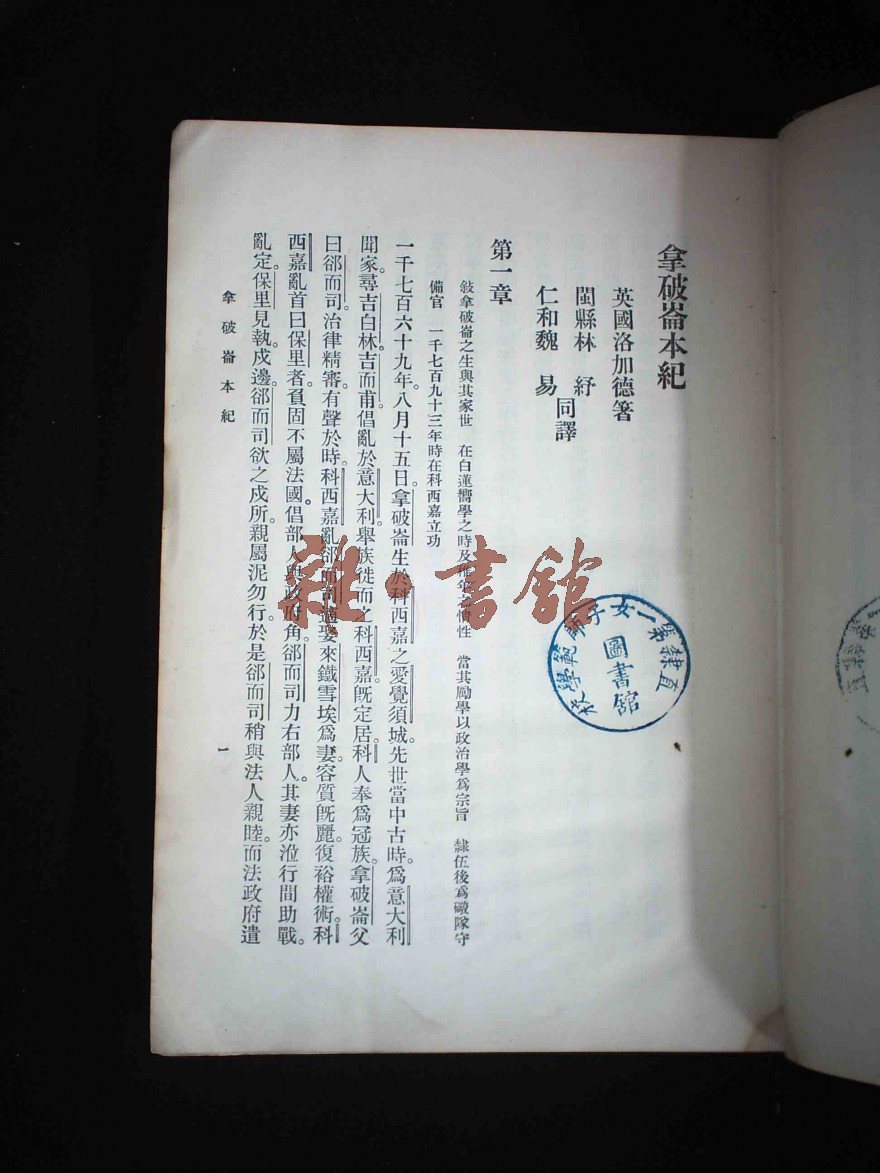 拿破崙本紀
英國洛加德箸
閩縣林　紓
仁和魏　易
同譯
第一章
敍拿破崙之生與其家世　在白蓮嚮學之時及　性　當其勵學以政治學爲宗旨　隸伍後爲礮隊守
備官　一千七百九十三年時在科西嘉立功
一千七百六十九年。八月十五日。拿破崙生於科西嘉之愛覺須城。先世當中古時。爲意大利
聞家。尋吉白林吉而甫倡亂於意大利。舉族徙而之科西嘉。旣定居。科人奉爲冠族。拿破崙父
曰郤而司。治律精審。有聲於時。科西嘉亂。郤而司適娶來鐵雪埃爲妻。容質旣麗。復裕權術。科
西嘉亂首曰保里者。負固不屬法國。倡部人與政府角。郤而司力右部人。其妻亦涖行間助戰。
亂定。保里見執。戍邊。郤而司欲之戍所。親屬泥勿行。於是郤而司稍與法人親睦。而法政府遣
拿破崙本紀
一
直隸第一女子師範學校
圖書館
雜·書館